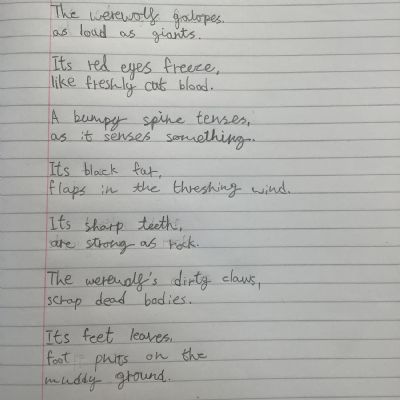 The werewolf galopes.
as loud as giants.
Its red eyes freeze,
like freshly cut blood.
A bumpy spine tenses,
as it senses something.
Its black fur,
flaps in the threshing wind.
Its sharp teeth,
are strong as rock.
The werewolf's dirty claws,
scrap dead bodies.
Its feet leaves,
foot prits on the
muddy ground.